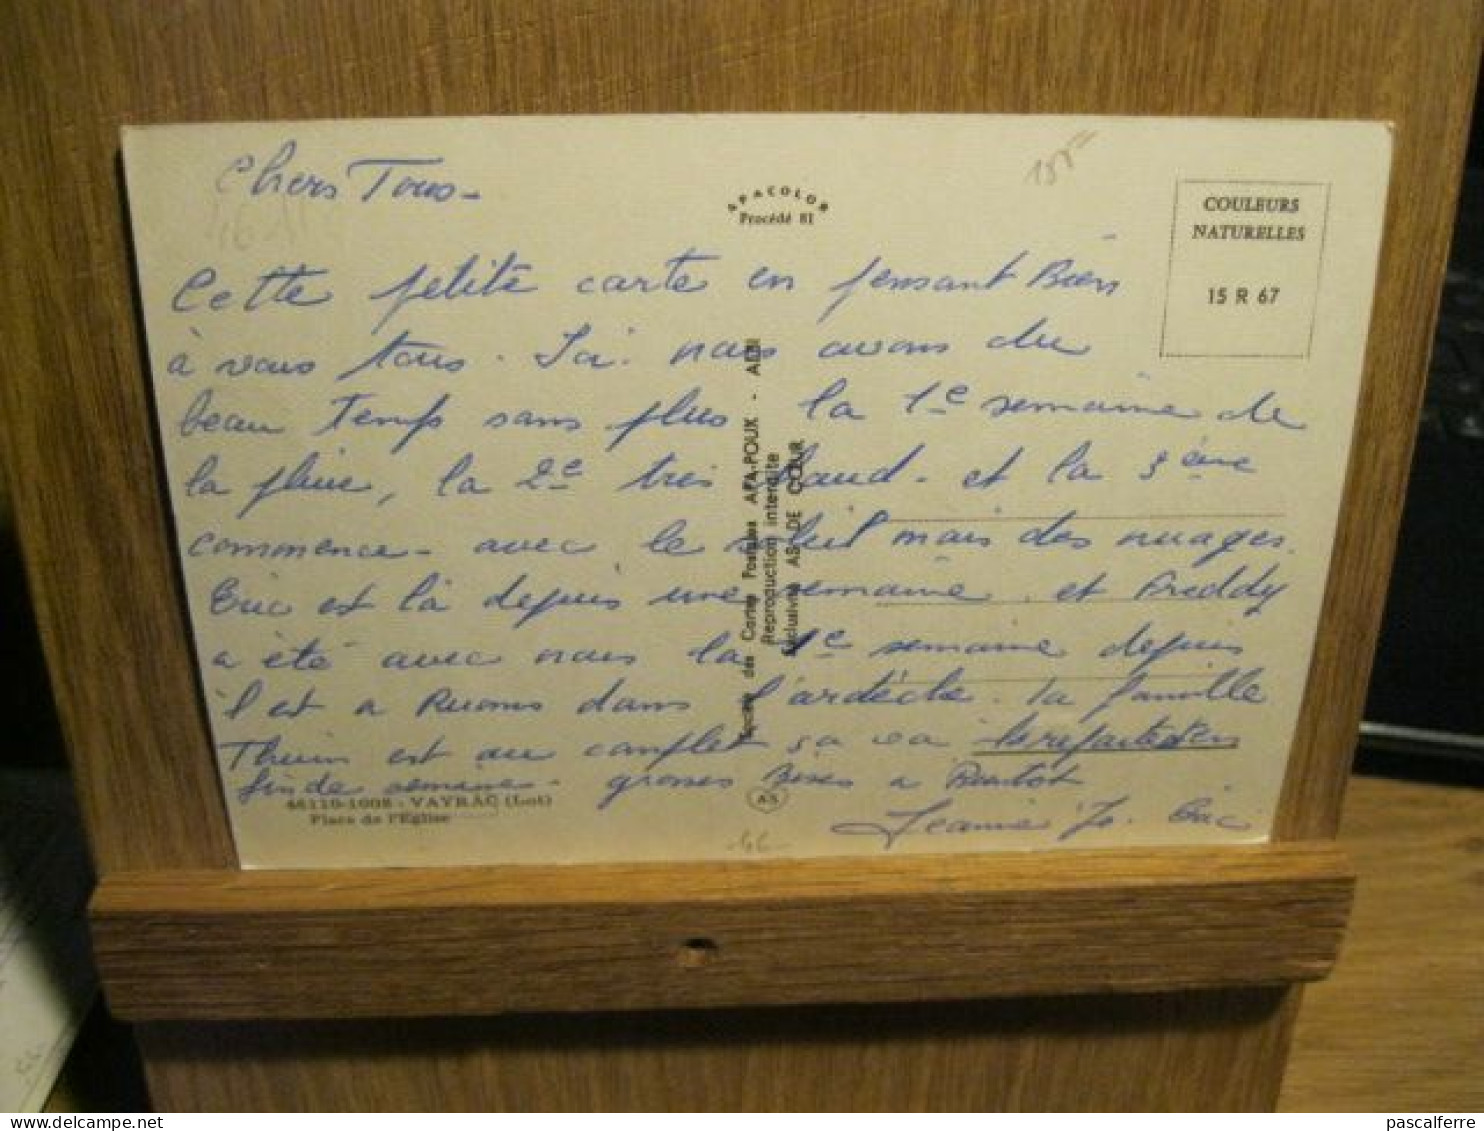 Chers Tous -
APACOLOR
Procédé 81
COULEURS
NATURELLES
15 R 67
Cette petite carte en pensant Bien
à vous tous. Ici. nous avons du
beau Temps sans plus la 1e semaine de
la pluie, la 2e très chaud - et la 3ème
commence - avec le soleil mais des nuages.
Eric est là depuis une semaine. et Freddy
a été avec nous la 1e semaine depuis
il est a Ruoms dans l'ardèche. la famille
Thuin est au complet sa va
fin de semaine - grosses Bises a Bientot
Jeanine Jo. Eric
46110-1008 - VAYRAC (Lot)
Place de l'Eglise
Société des Cartes Postales APA-POUX - ALBI
Reproduction interdite
Exclusivité AS DE CŒUR
AS
pascalferre